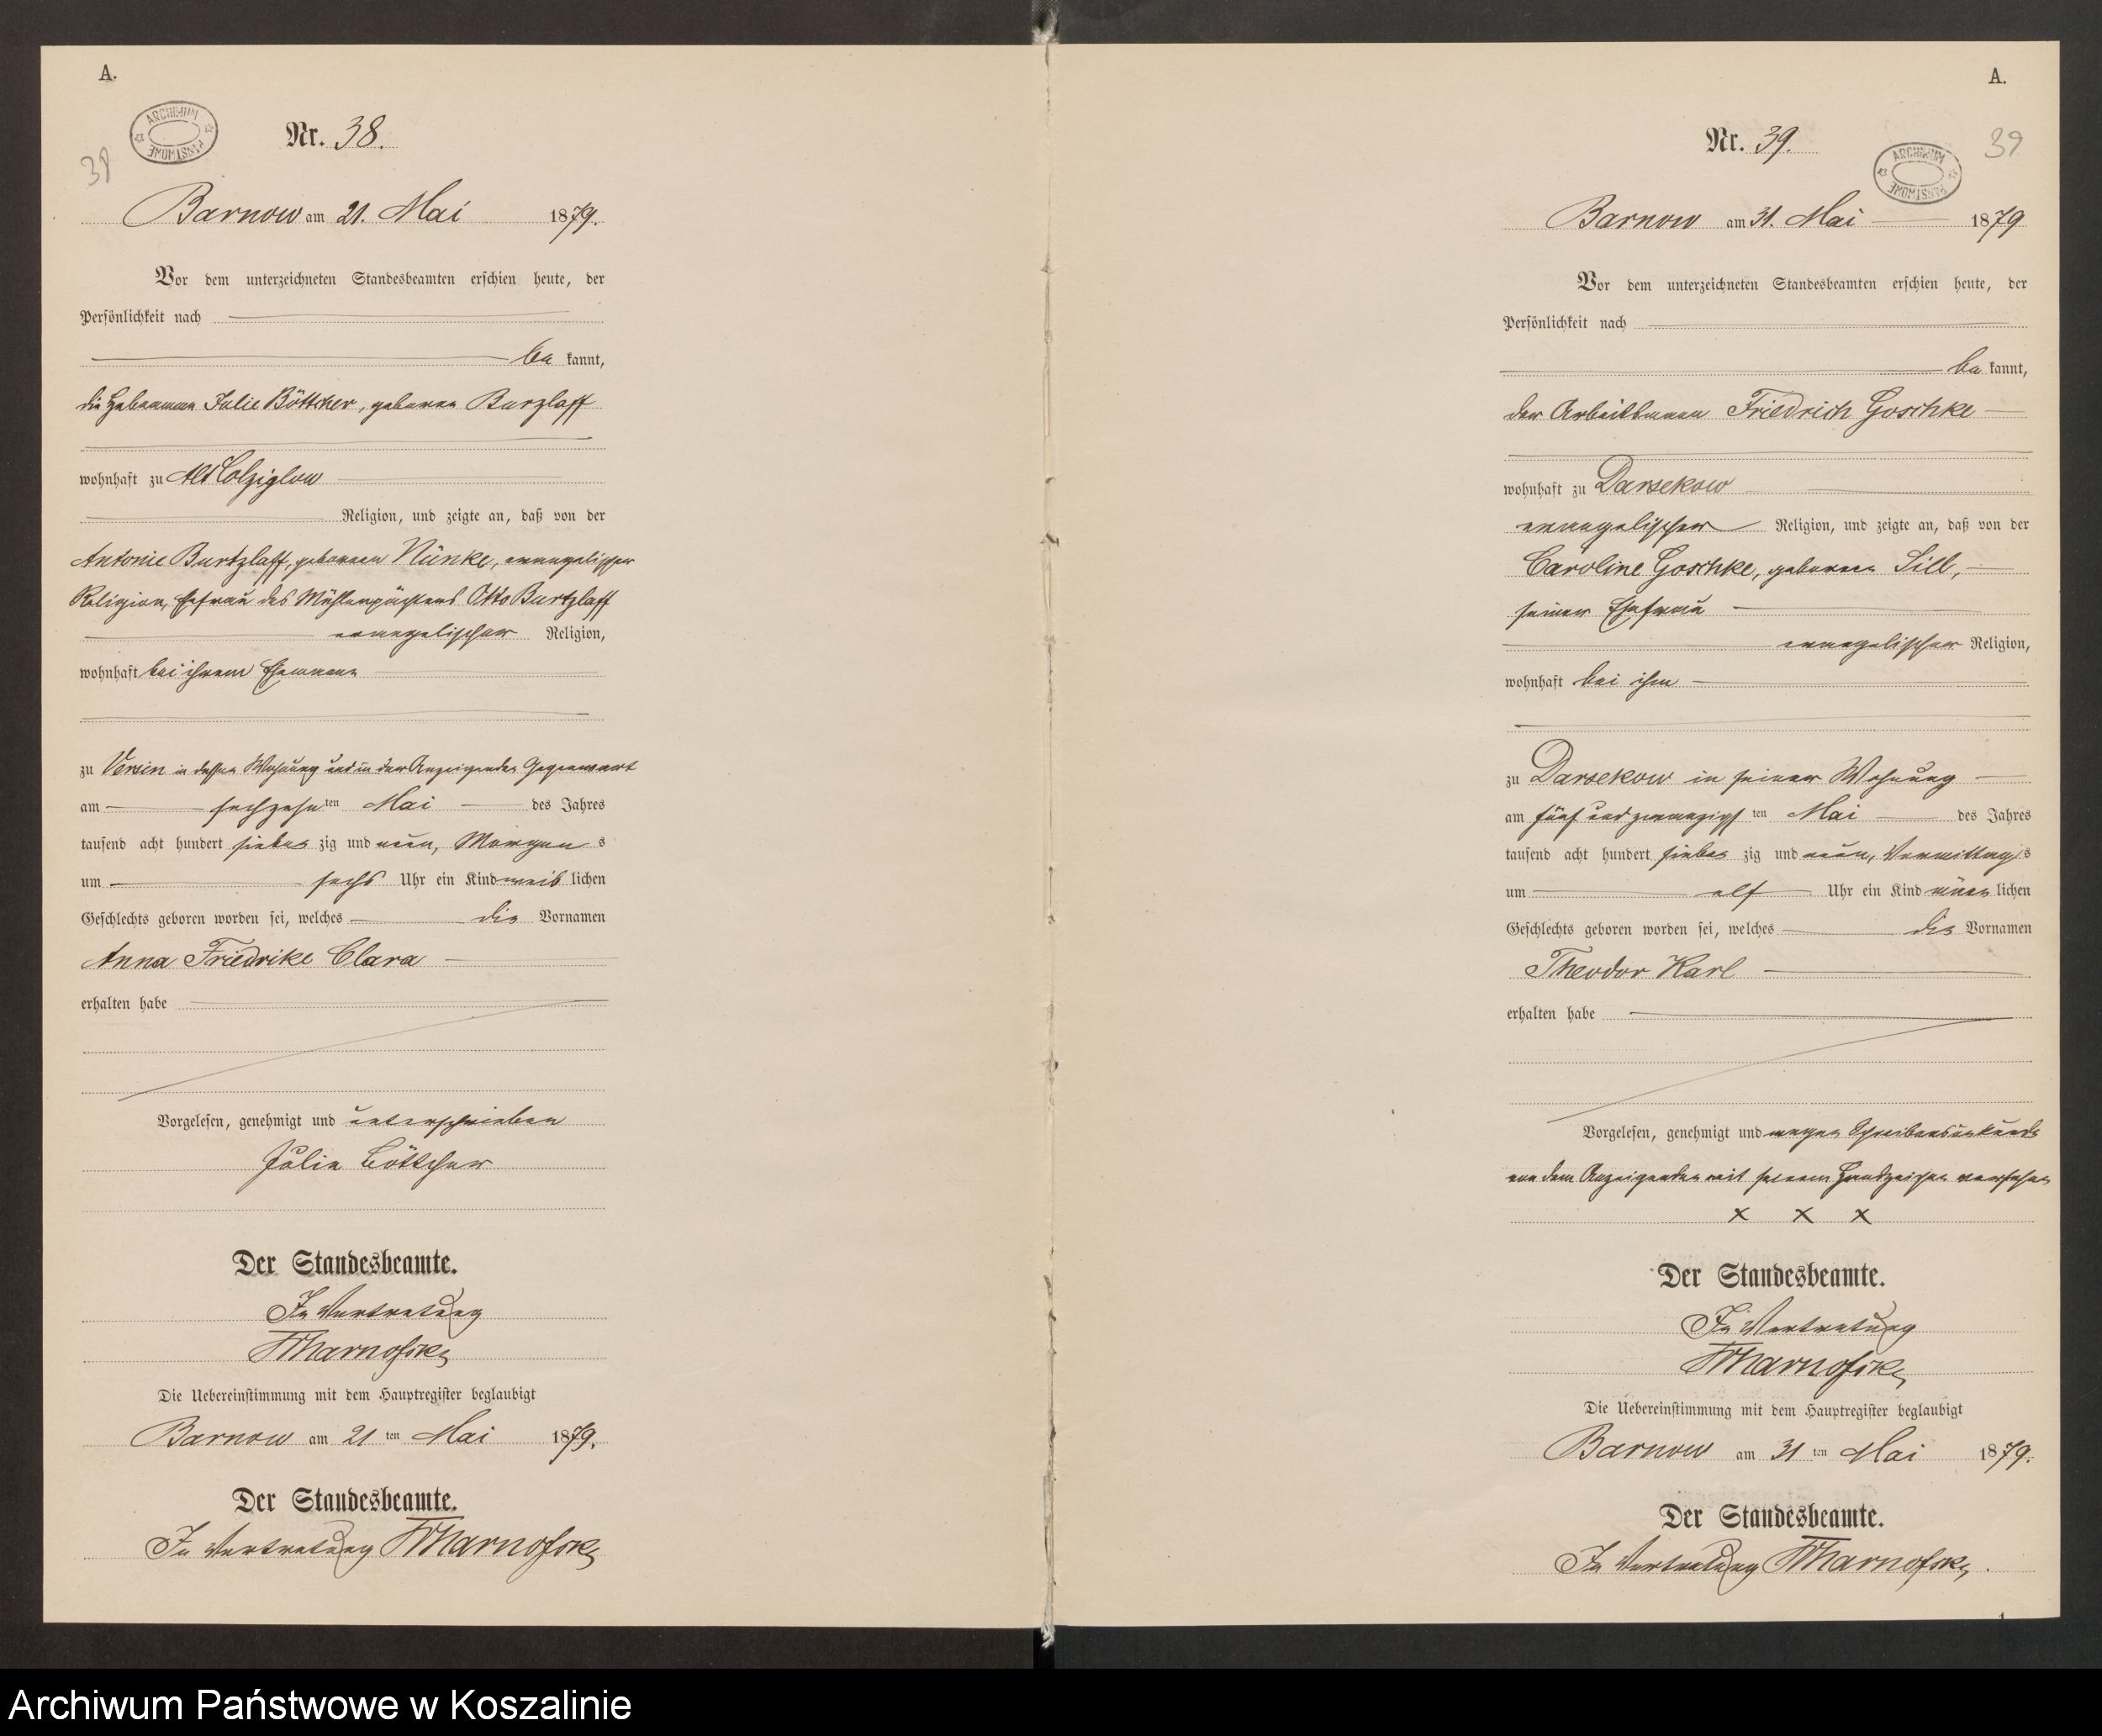 A.
ARCHIWUM PAŃSTWOWE
38
Nr. 38.
Barnow am 21. Mai 1879.
Vor dem unterzeichneten Standesbeamten erschien heute, der
Persönlichkeit nach
be kannt,
die Hebamme Julie Böttcher, geborene Burzlaff
wohnhaft zu Alt Colziglow
Religion, und zeigte an, daß von der
Antonie Burtzlaff, geborenen Nünke, evangelischer
Religion, Ehefrau des Mühlenpächters Otto Burtzlaff
evangelischer Religion,
wohnhaft bei ihrem Ehemann
zu Versin in dessen Wohnung und in der Anzeigenden Gegenwart
am sechzehn ten Mai des Jahres
tausend acht hundert sieben zig und neun, Morgen s
um sechs Uhr ein Kind weib lichen
Geschlechts geboren worden sei, welches die Vornamen
Anna Friedrike Clara
erhalten habe
Vorgelesen, genehmigt und unterschrieben
Julie Böttcher
Der Standesbeamte.
In Vertretung
Die Uebereinstimmung mit dem Hauptregister beglaubigt
Barnow am 21 ten Mai 1879.
Der Standesbeamte.
In Vertretung
A.
39
Nr. 39.
ARCHIWUM PAŃSTWOWE
Barnow am 31. Mai 1879
Vor dem unterzeichneten Standesbeamten erschien heute, der
Persönlichkeit nach
be kannt,
der Arbeitsmann Friedrich Goschke
wohnhaft zu Darsekow
evangelischer Religion, und zeigte an, daß von der
Caroline Goschke, geborenen Sill,
seiner Ehefrau
evangelischer Religion,
wohnhaft bei ihm
zu Darsekow in seiner Wohnung
am fünf und zwanzigs ten Mai des Jahres
tausend acht hundert sieben zig und neun, Vormittag s
um elf Uhr ein Kind männ lichen
Geschlechts geboren worden sei, welches die Vornamen
Theodor Karl
erhalten habe
Vorgelesen, genehmigt und wegen Schreibensunkunde
von dem Anzeigenden mit seinem Handzeichen versehen
x x x
Der Standesbeamte.
In Vertretung
Die Uebereinstimmung mit dem Hauptregister beglaubigt
Barnow am 31 ten Mai 1879.
Der Standesbeamte.
In Vertretung
Archiwum Państwowe w Koszalinie